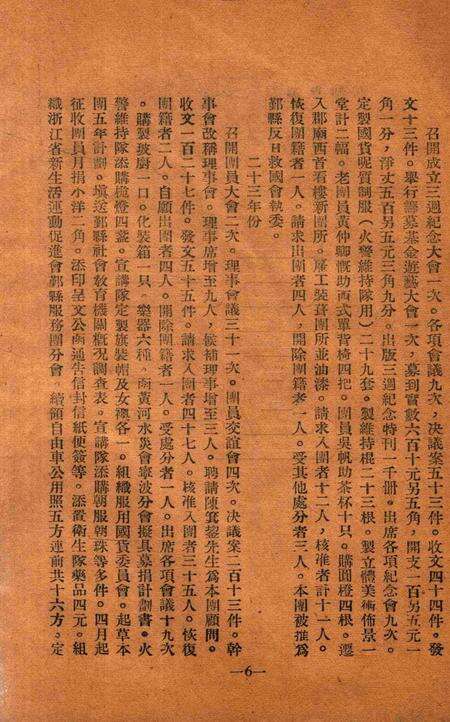 召開成立三週紀念大會一次。各項會議九次，決議案五十三件。收文四十四件。發
文十三件。舉行籌募基金遊藝大會一次，募到實數六百十元另五角，開支一百另五元一
角一分，淨丈五百另五元三角九分。出版三週紀念特刊一千册。出席各項紀念會九次。
定製國貨呢質制服（火警維持隊用）二十九套。製維持棍二十三根。製立體美術佈景一
堂計二幅。老團員黃仲卿慨助西式單背椅四把。團員吳帆助茶杯十只。購圓櫈四根。遷
入郡廟西首看樓新團所。雇工裝葺團所並油漆。請求入團者十二人，核准者計十一人。
恢復團籍者一人。請求出團者四人，開除團籍者一人。受其他處分者三人。本團被推為
鄞縣反日救國會執委。
二十三年份
召開團員大會二次。理事會議三十一次。團員交誼會四次。決議案二百十三件。幹
事會改稱理事會。理事席增至九人，候補理事增至三人。聘請陳寒蓥先生為本團顧問。
收文一百二十七件。發文五十五件。請求入團者四十七人。核准入團者三十五人。恢復
團籍者二人。自願出團者四人。開除團籍者一人。受處分者一人。出席各項會議十九次
。購製玻廚一口。化裝箱一只。樂器六種。函黃河水災會寧波分會擬具募捐計劃書。火
警維持隊添購桅燈四盞。宣講隊定製旗裝帽及女褂各一。組織服用國貨委員會。起草本
團五年計劃。填送鄞縣社會教育機關概況調查表。宣講隊添購朝服朝珠等多件。四月起
征收團員月捐小洋二角。添印呈文公函通告信封信紙便簽等。添置衛生隊藥品四元。組
織浙江省新生活運動促進會鄞縣服務團分會。續領自由車公用照五方連前共十六方。定
—6—